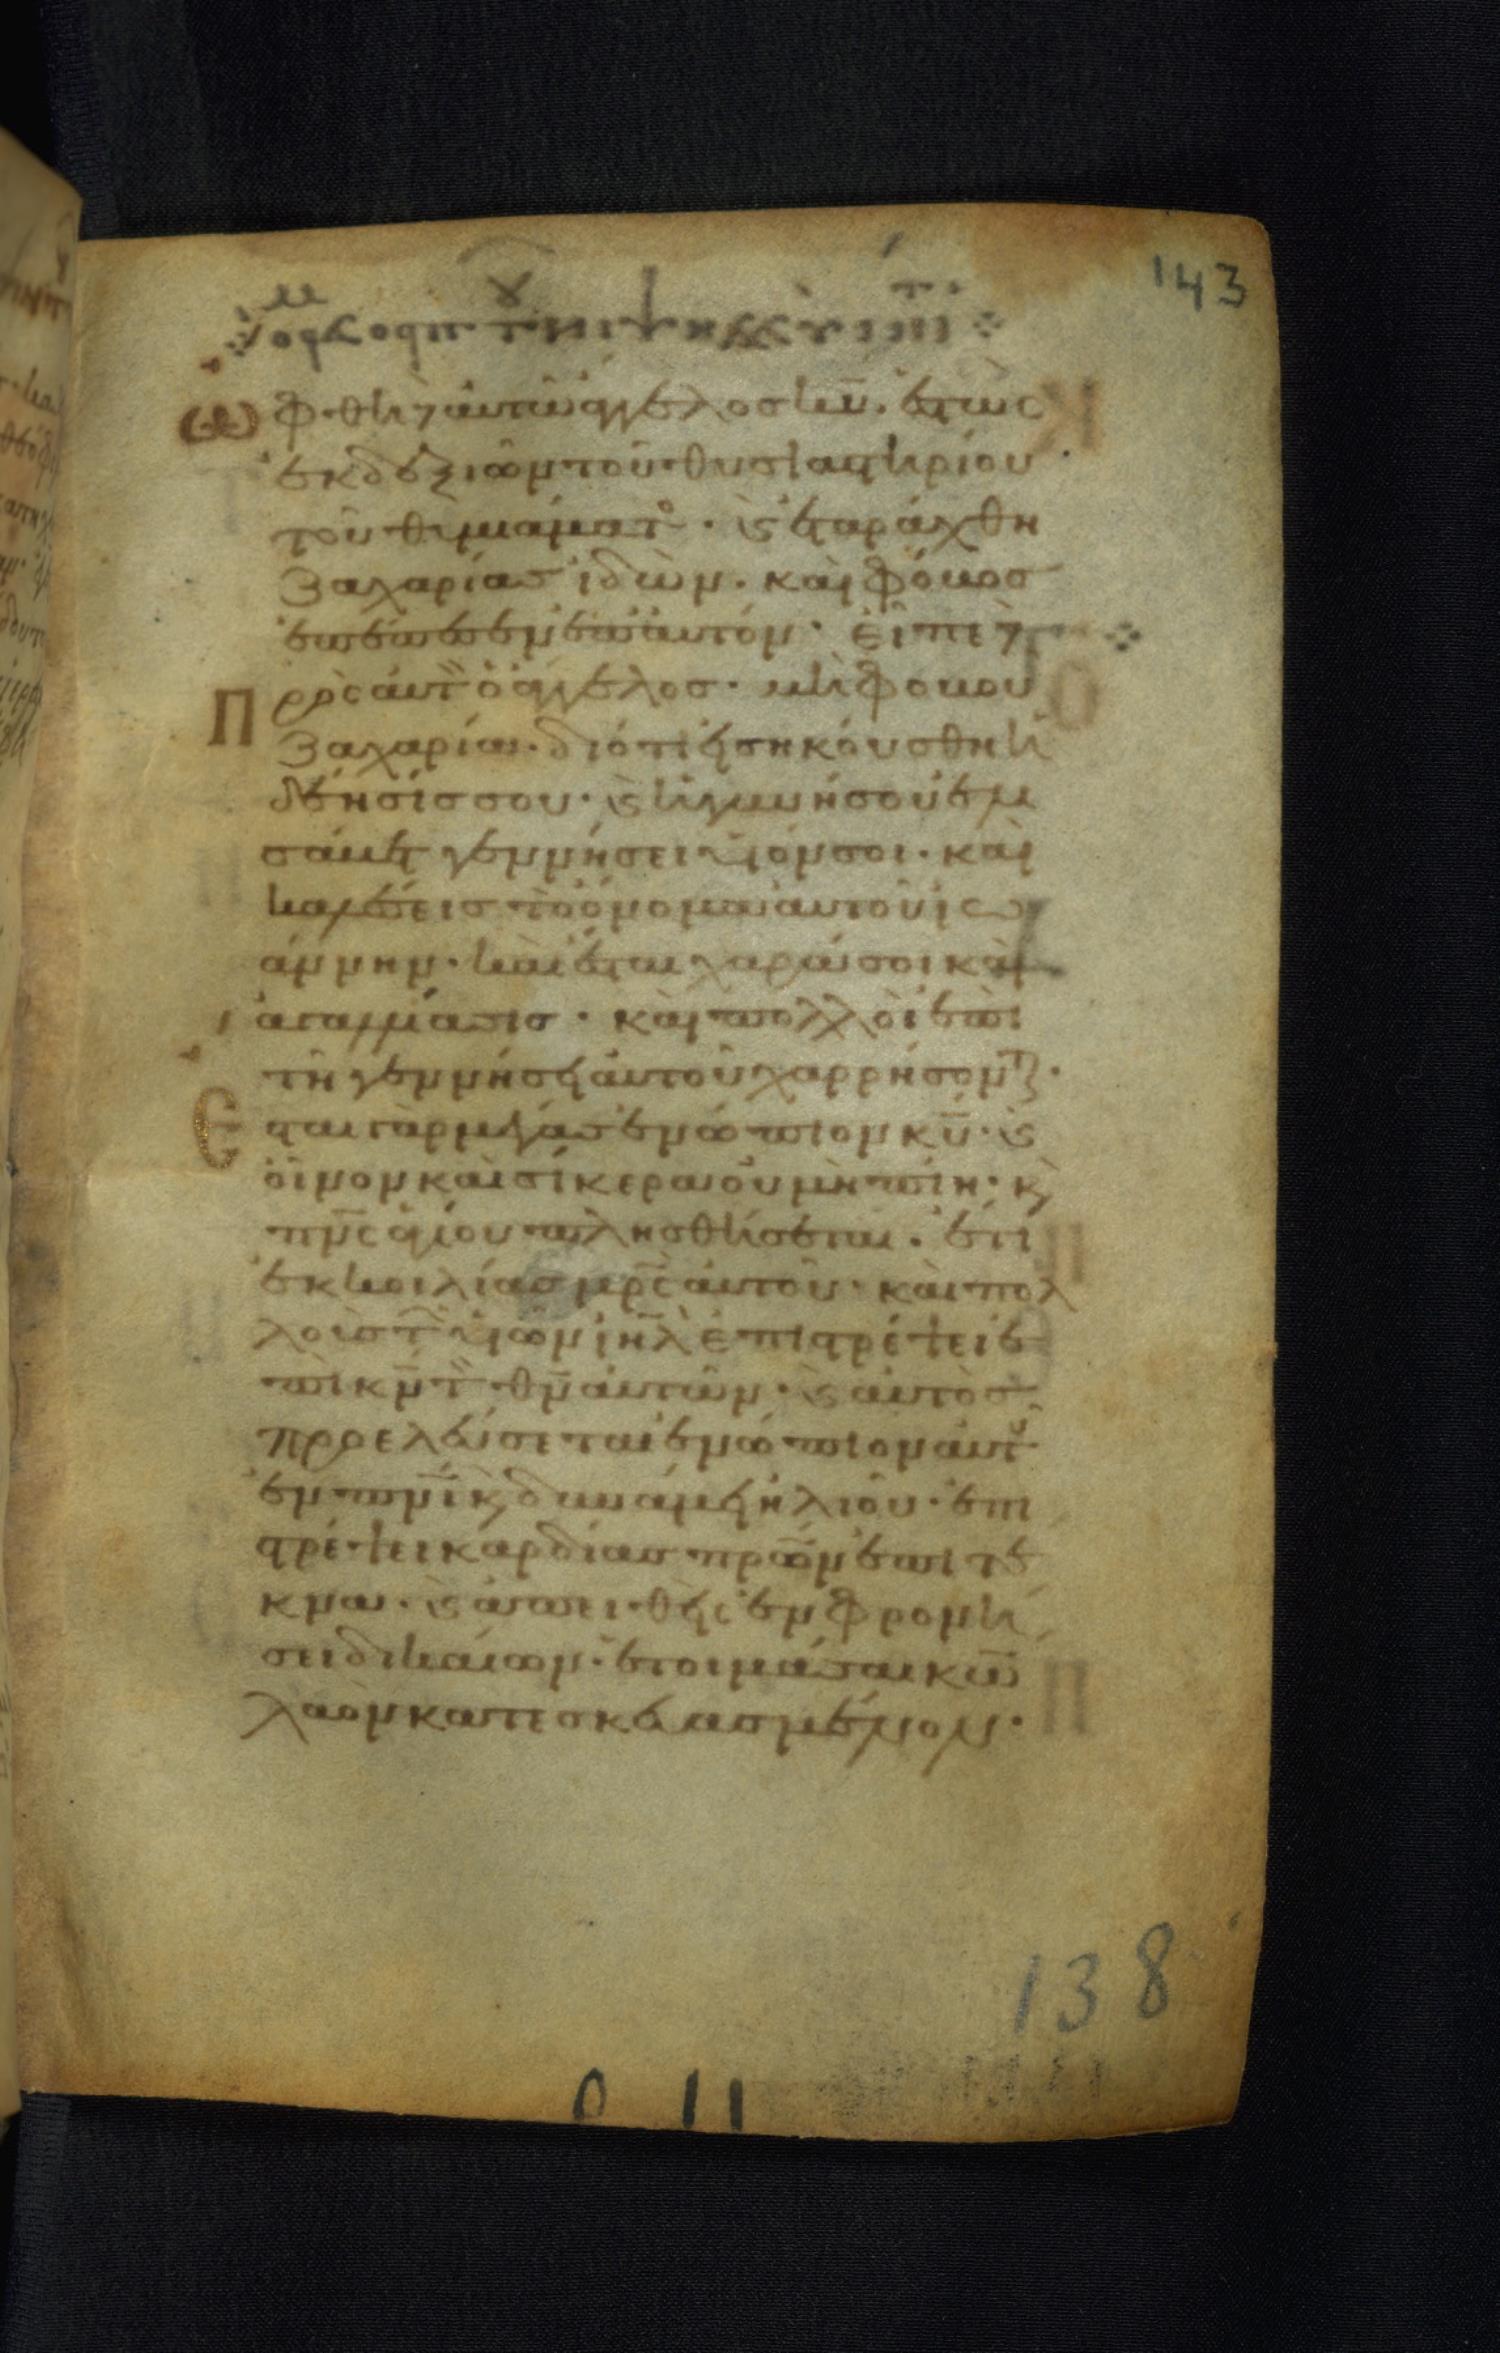 143
ὤφθη δὲ αὐτῶ ἄγγελος κυ̅. ἑστὼς
ἐκ δεξιῶν τοῦ θυσιαστηρίου
τοῦ θυμιάματο. ϗ ἐταράχθη
Ζαχαρίας ἰδὼν. καὶ φόβος
ἐπέπεσεν ἐπ αὐτόν. εἶπε δὲ
πρὸς αὐτ ὁ ἄγγελος. μὴ φοβοῦ
Ζαχαρία. διότι εἰσηκούσθη ἡ
δέησίς σου. ϗ ἡ γυνή σου ἐλι
σάβετ γεννήσει υἱόν σοι. καὶ
καλέσεις τὸ ὄνομα αὐτοῦ ἰω
άννην. καὶ ἔσται χαρά σοι καὶ
ἀγαλλίασις. καὶ πολλοὶ ἐπὶ
τῆ γεννήσει αὐτοῦ χαρρήσοντ.
Ἔσται γὰρ μέγας ἐνώπιον κυ̅. ϗ
οἶνον καὶ σίκερα οὐ μὴ πίη. ϗ
πνς̅ ἁγίου πλησθήσεται. ἔτι
ἐκ κοιλίας μρς̅ αὐτοῦ. καὶ πολ
λοὺς τ υἱῶν ιηλ̅ ἐπιστρέψει ἐ
πὶ κν̅ τ θν̅ αὐτῶν. ϗ αὐτὸς
προελεύσεται ἐνώπιον αὐτ
ἐν πνι̅ ϗ δυνάμει ἠλιοῦ. ἐπι
στρέψει καρδίας πρων̅ ἐπὶ τέ
κνα. ϗ ἀπειθεῖς ἐν φρονή
σει δικαίων. ἑτοιμάσαι κω̅
λαὸν κατεσκευασμένον.
138